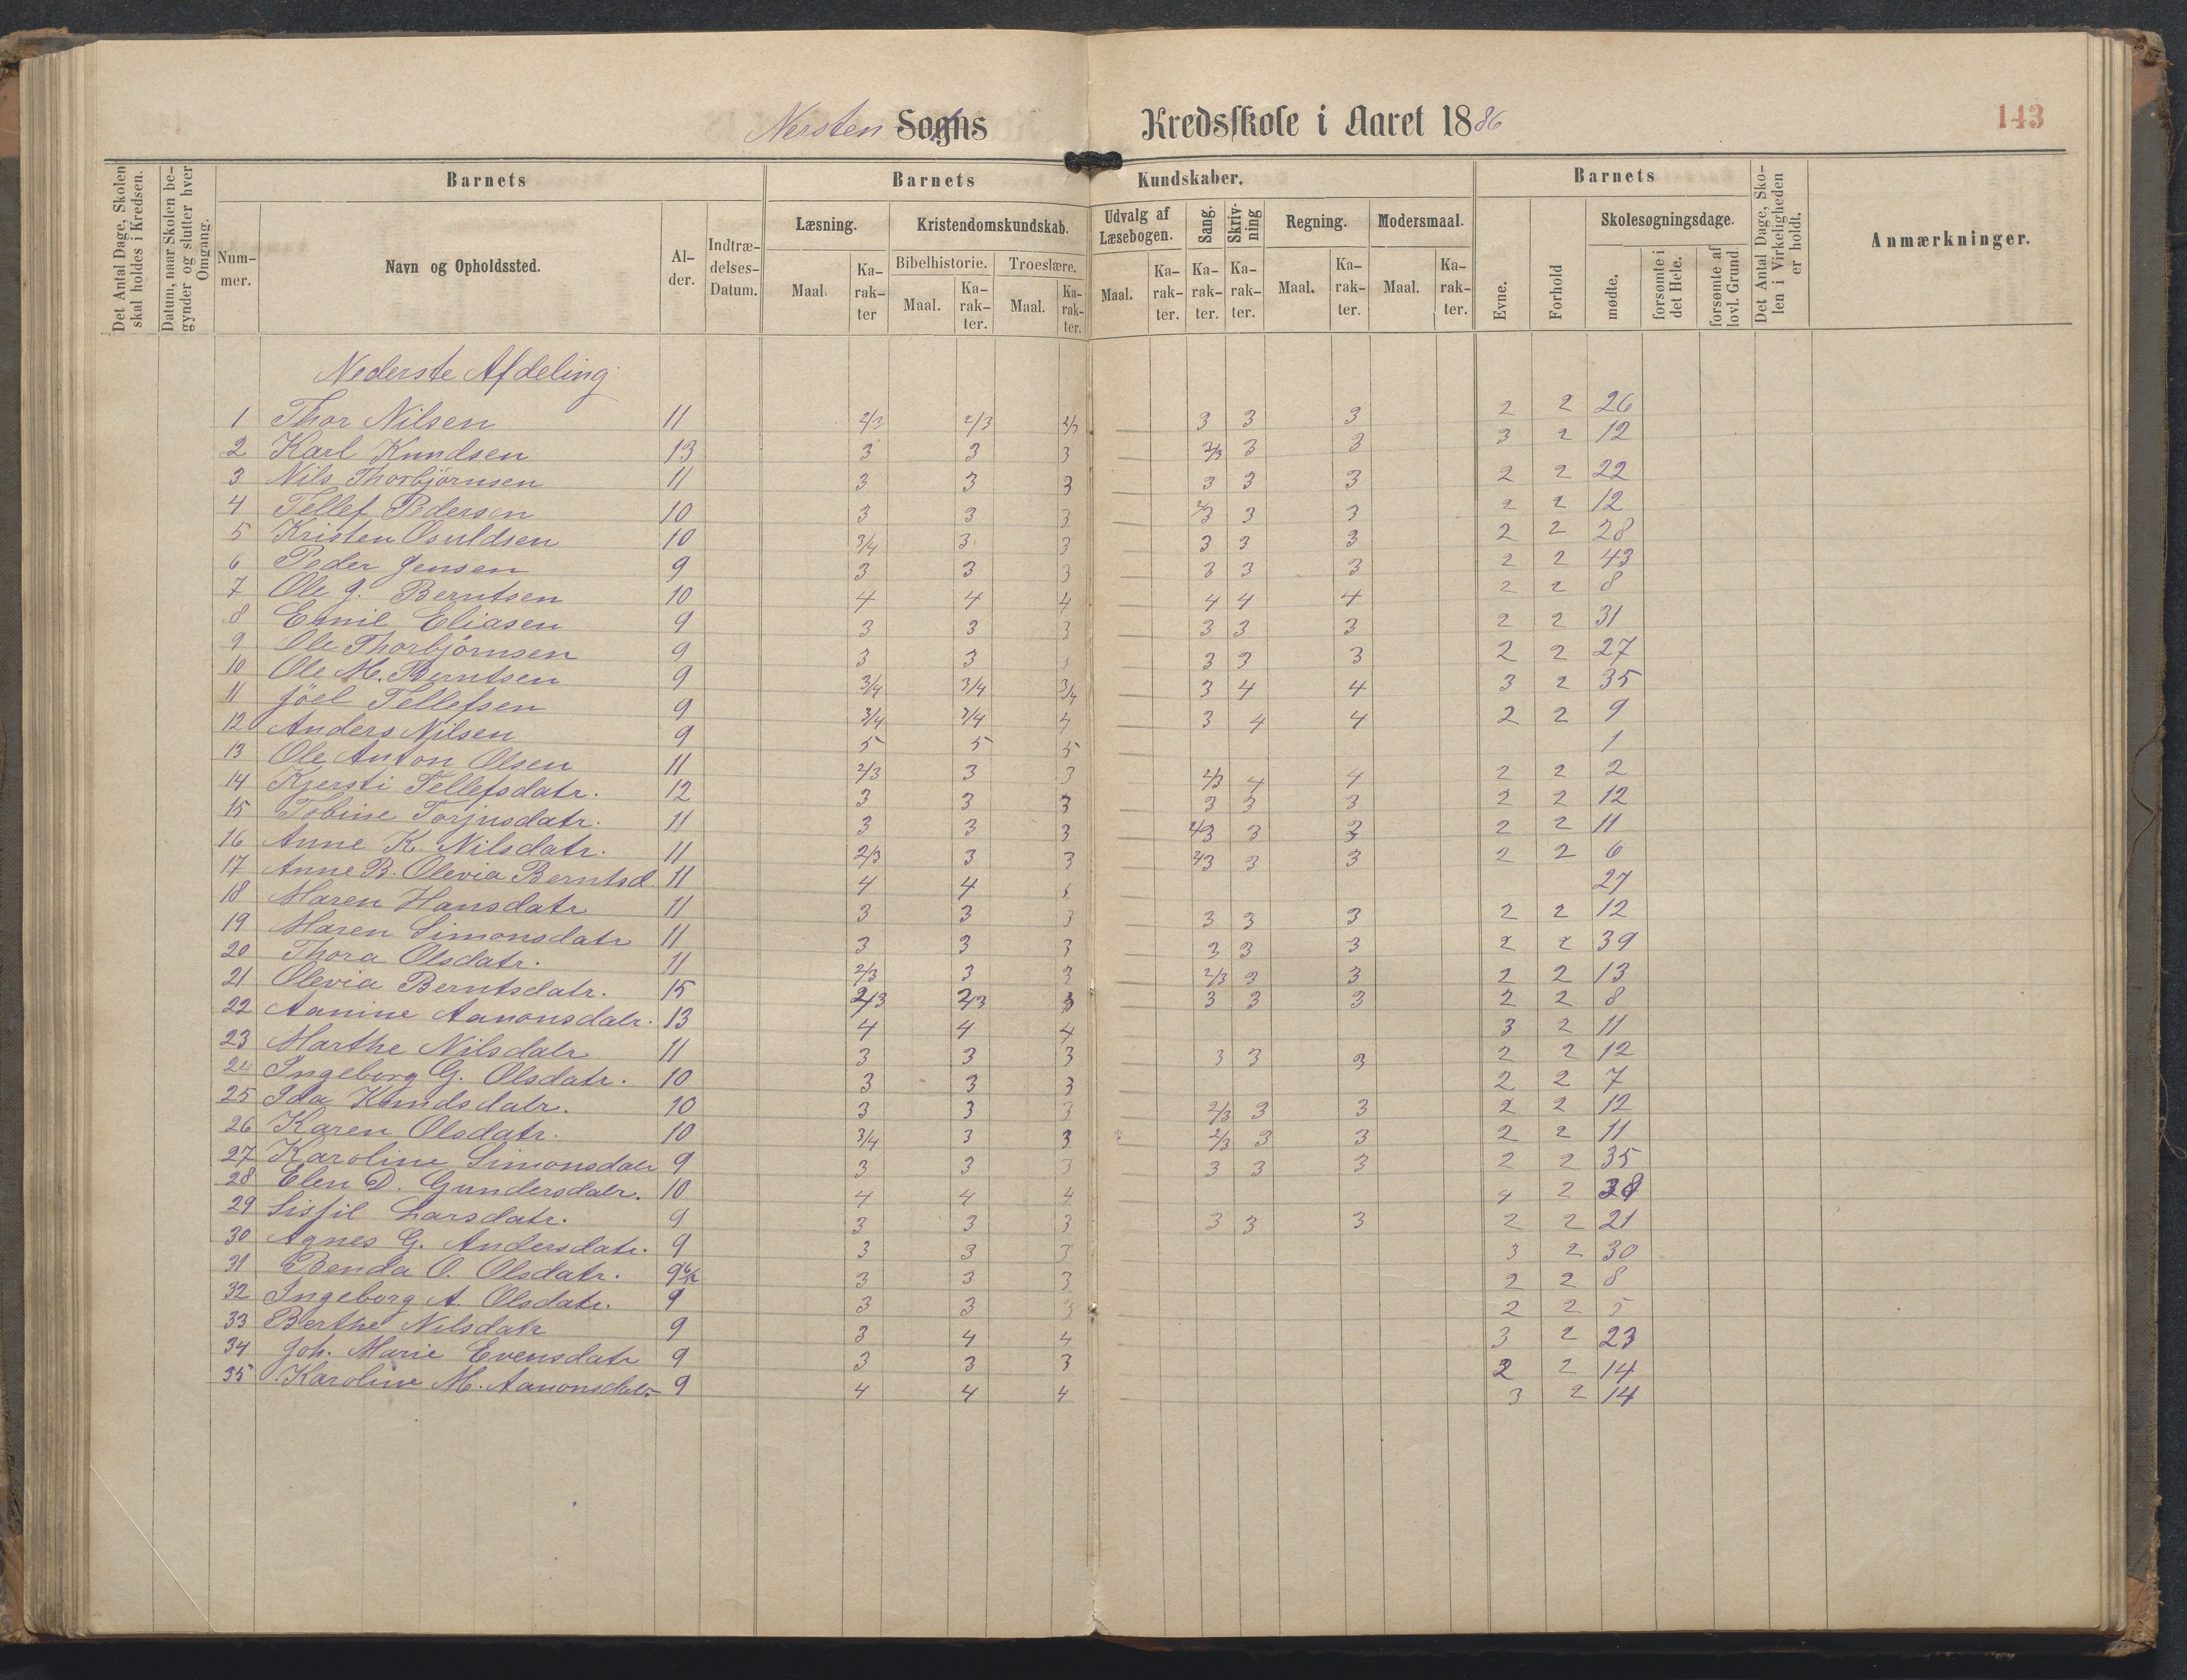 Nersten Sogns Kredsskole i Aaret 1886
143
Det Antal Dage, Skolen skal holdes i Kredsen.
Datum, naar Skolen begynder og slutter hver Omgang.
Barnets
Nummer.
Navn og Opholdssted.
Alder.
Indtrædelses-Datum.
Barnets Kundskaber.
Læsning.
Maal.
Karakter
Kristendomskundskab.
Bibelhistorie.
Maal.
Karakter.
Troeslære.
Maal.
Karakter.
Udvalg af Læsebogen.
Maal.
Karakter.
Sang.
Karakter.
Skrivning
Karakter.
Regning.
Maal.
Karakter.
Modersmaal.
Maal.
Karakter.
Barnets
Evne.
Forhold
Skolesøgningsdage.
mødte.
forsømte i det Hele.
forsømte af lovl. Grund
Det Antal Dage, Skolen i Virkeligheden er holdt.
Anmærkninger.
Nederste Afdeling
1 Thor Nilsen 11 2/3 2/3 2/3 3 3 3 2 2 26
2 Karl Knudsen 13 3 3 3 2/3 3 3 3 2 12
3 Nils Thorbjørnsen 11 3 3 3 3 3 3 2 2 22
4 Tellef Pedersen 10 3 3 3 2/3 3 3 2 2 12
5 Kristen Osuldsen 10 3/4 3 3 3 3 3 2 2 28
6 Peder Jensen 9 3 3 3 3 3 3 2 2 43
7 Ole J. Berntsen 10 4 4 4 4 4 4 2 2 8
8 Emil Eliasen 9 3 3 3 3 3 3 2 2 31
9 Ole Thorbjørnsen 9 3 3 3 3 3 3 2 2 27
10 Ole M. Berntsen 9 3/4 3/4 3/4 3 4 4 3 2 35
11 Jöel Tellefsen 9 3/4 3/4 4 3 4 4 2 2 9
12 Anders Nilsen 9 5 5 5 1
13 Ole Anton Olsen 11 2/3 3 3 2/3 4 4 2 2 2
14 Kjersti Tellefsdatr. 12 3 3 3 3 3 3 2 2 12
15 Tobine Torjusdatr. 11 3 3 3 2/3 3 3 2 2 11
16 Anne K. Nilsdatr. 11 2/3 3 3 2/3 3 3 2 2 6
17 Anne B. Olevia Berntsd. 11 4 4 27
18 Maren Hansdatr 11 3 3 3 3 3 3 2 2 12
19 Maren Simonsdatr 11 3 3 3 3 3 3 2 2 39
20 Thora Olsdatr. 11 2/3 3 3 2/3 3 3 2 2 13
21 Olevia Berntsdatr. 15 2/3 2/3 3 3 3 3 2 2 8
22 Aanine Aanonsdatr. 13 4 4 4 3 2 11
23 Marthe Nilsdatr 11 3 3 3 3 3 3 2 2 12
24 Ingeborg G. Olsdatr. 10 3 3 3 2 2 7
25 Ida Knudsdatr. 10 3 3 3 2/3 3 3 2 2 12
26 Karen Olsdatr. 10 3/4 3 3 2/3 3 3 2 2 11
27 Karoline Simonsdatr 9 3 3 3 3 3 3 2 2 35
28 Elen D. Gundersdatr. 10 4 4 4 4 2
29 Sisjil Larsdatr. 9 3 3 3 3 3 3 2 2 21
30 Agnes G. Andersdatr. 9 3 3 3 3 2 30
31 Benda O. Olsdatr. 9 3 3 3 2 2 8
32 Ingeborg A. Olsdatr. 9 3 3 3 2 2 5
33 Berthe Nilsdatr 9 3 4 4 3 2 23
34 Joh. Marie Evensdatr 9 3 3 3 2 2 14
35 Karoline M. Aanonsdatr 9 4 4 4 3 2 14